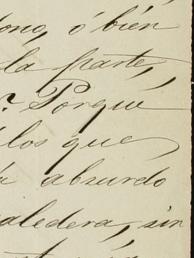 ono, ó bien
la parte,
? Porqué
los que,
absurdo
aledera, sin